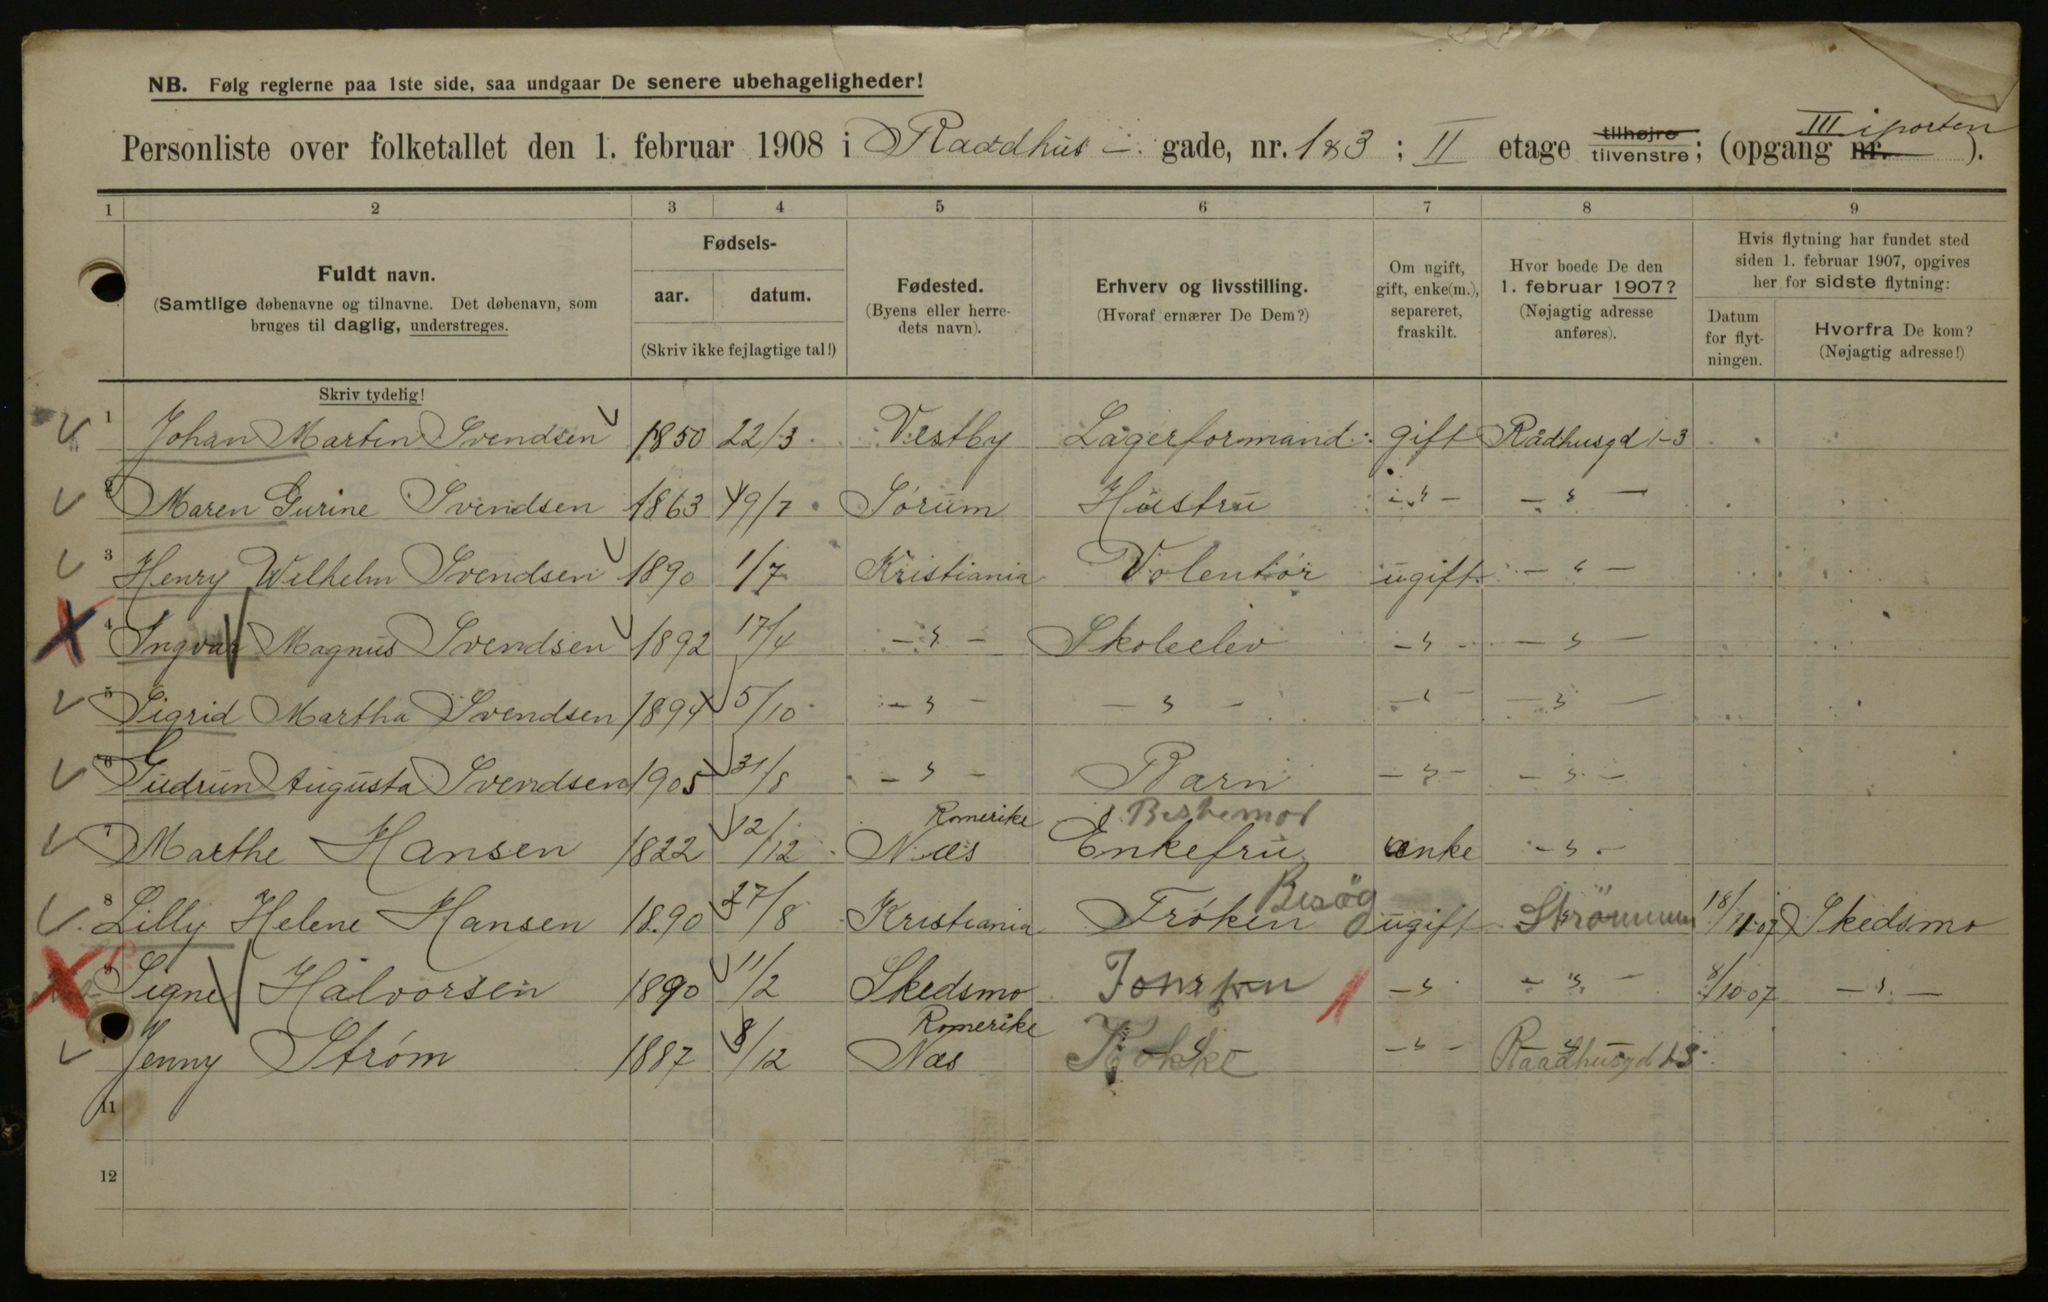 NB. Følg reglerne paa 1ste side, saa undgaar De senere ubehageligheder!
Personliste over folketallet den 1. februar 1908 i Raadhus gade, nr. 1 & 3 ; II etage tilhøjre tilvenstre; (opgang nr. III i porten ).
1 2 3 4 5 6 7 8 9
Fuldt navn.
(Samtlige døbenavne og tilnavne. Det døbenavn, som bruges til daglig, understreges.
Skriv tydelig!
Fødsels-
aar. datum.
(Skriv ikke fejlagtige tal!)
Fødested.
(Byens eller herredets navn).
Erhverv og livsstilling.
(Hvoraf ernærer De Dem?)
Om ugift, gift, enke(m.), separeret, fraskilt.
Hvor boede De den 1. februar 1907?
(Nøjagtig adresse anføres).
Hvis flytning har fundet sted siden 1. februar 1907, opgives her for sidste flytning:
Datum for flytningen.
Hvorfra De kom?
(Nøjagtig adresse!)
1 Johan Martin Svendsen 1850 22/3 Vestby Lagerformand gift Rådhusgd 1-3
2 Maren Gurine Svendsen 1863 19/7 Sørum Hustru - " - - " -
3 Henry Wilhelm Svendsen 1890 1/7 Kristiania Volentør ugift - " -
4 Ingvar Magnus Svendsen 1892 17/4 - " - Skoleelev - " - - " -
5 Sigrid Martha Svendsen 1894 5/10 - " - - " - - " - - " -
6 Gudrun Augusta Svendsen 1905 31/8 - " - Barn - " - - " -
7 Marthe Hansen 1822 12/12 Romerike Næs Bestemor Enkefru enke - " -
8 Lilly Helene Hansen 1890 27/8 Kristiania Frøken Besøg ugift Strømmen 18/11-07 Skedsmo
9 Signe Halvorsen 1890 11/2 Skedsmo - " - - " - 8/10-07 - " -
Jenny Strøm 1887 8/12 Romerike Næs Kokke - " - Raadhusgd 1-3
11
12